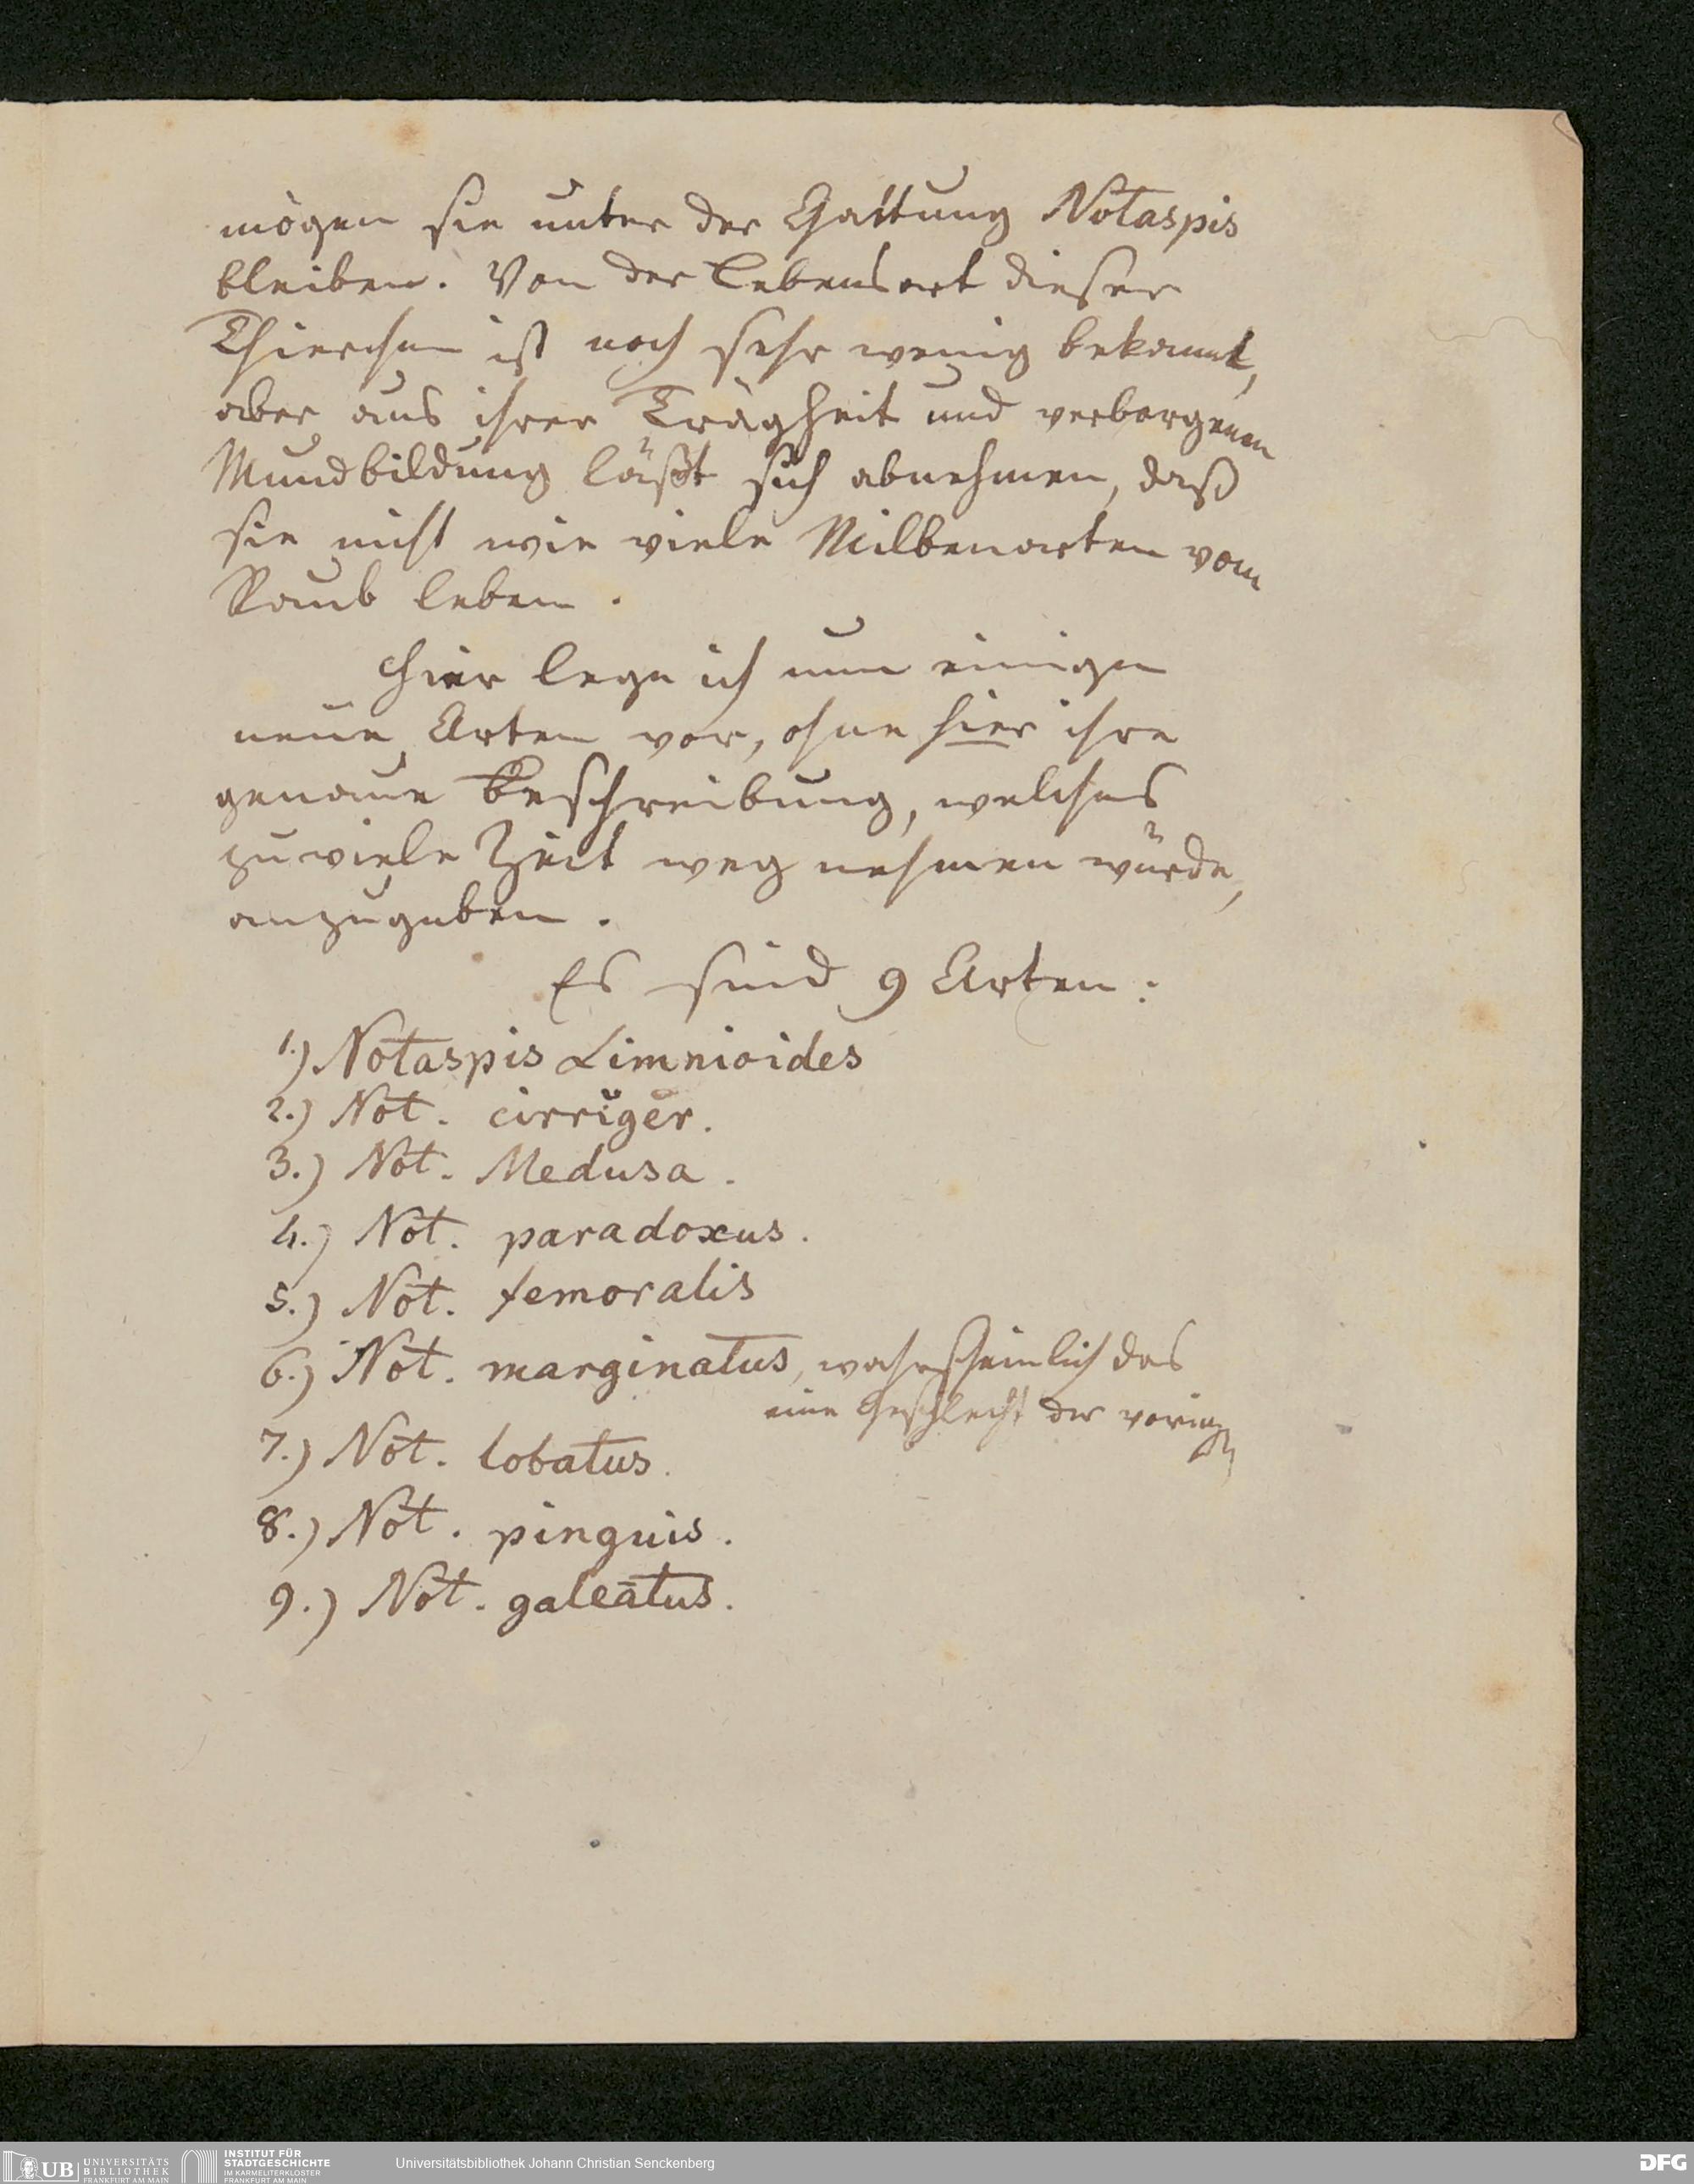 mögen sie unter der Gattung Notaspis
bleiben. Von der Lebensart dieser
Thierchen ist noch sehr wenig bekannt,
aber aus ihrer Trägheit und verborgenen
Mundbildung läßt sich abnehmen, daß
sie nicht wie viele Milbenarten vom
Raub leben.
Hier lege ich nun einige
neue Arten vor, ohne hier ihre
genaue Beschreibung, welches
zu viele Zeit weg nehmen würde,
anzugeben.
Es sind 9 Arten:
1.) Notaspis Limnioides
2.) Not. cirriger.
3.) Not. Medusa.
4.) Not. paradoxus.
5.) Not. femoralis
6.) Not. marginatus, wahrscheinlich das
eine Geschlecht der vorigen
7.) Not. lobatus.
8.) Not. pinguis.
9.) Not. galeatus.
UB UNIVERSITÄTS BIBLIOTHEK FRANKFURT AM MAIN
INSTITUT FÜR STADTGESCHICHTE IM KARMELITERKLOSTER FRANKFURT AM MAIN
Universitätsbibliothek Johann Christian Senckenberg
DFG